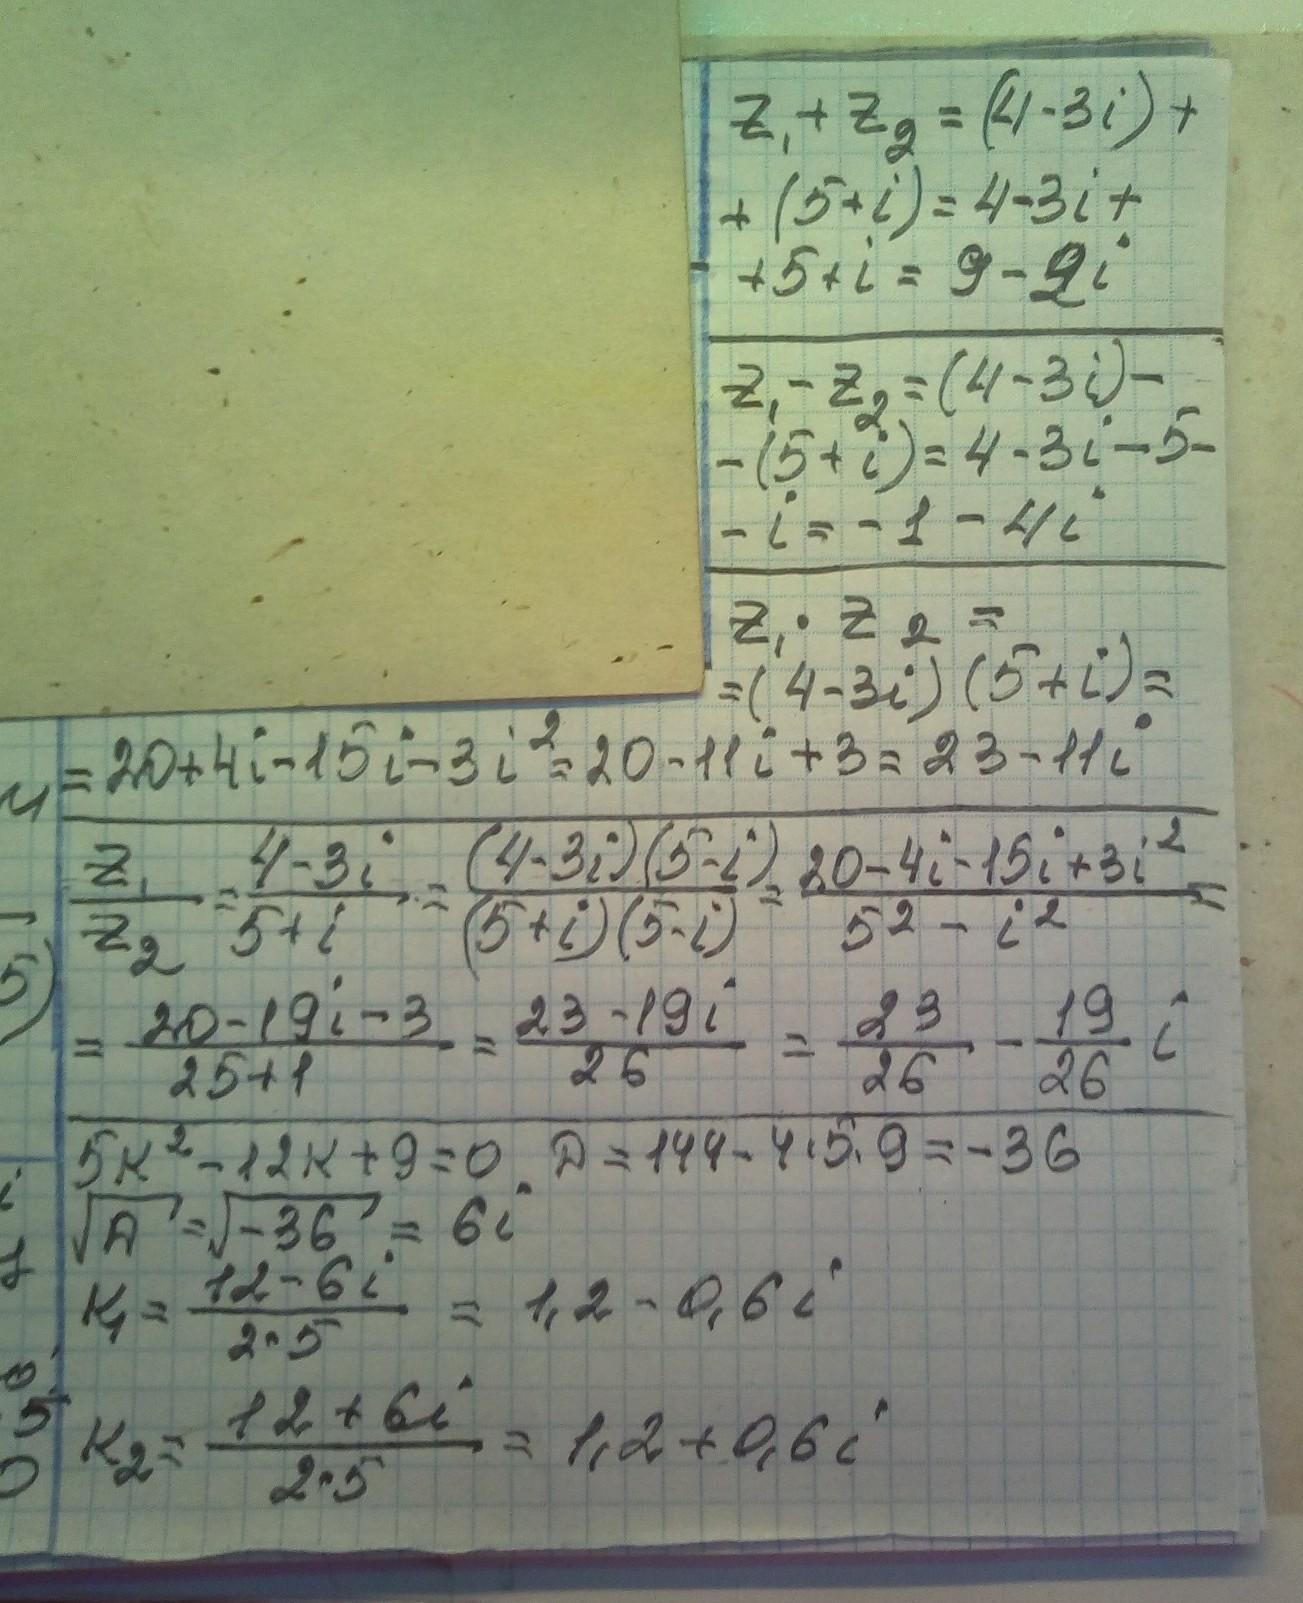 Z₁ + Z₂ = (4-3i) +
+ (5+i) = 4-3i +
+5+i = 9-2i
Z₁ - Z₂ = (4-3i) -
-(5+i) = 4-3i-5-
-i = -1-4i
Z₁ · Z₂ =
=(4-3i)(5+i)=
=20+4i-15i-3i²=20-11i+3=23-11i
Z₁/Z₂ = (4-3i)/(5+i) = (4-3i)(5-i)/(5+i)(5-i) = (20-4i-15i+3i²)/(5²-i²) =
= (20-19i-3)/(25+1) = (23-19i)/26 = 23/26 - 19/26 i
5к²-12к+9=0 D=144-4·5·9=-36
√D = √-36 = 6i
к₁ = (12-6i)/(2·5) = 1,2-0,6i
к₂ = (12+6i)/(2·5) = 1,2+0,6i